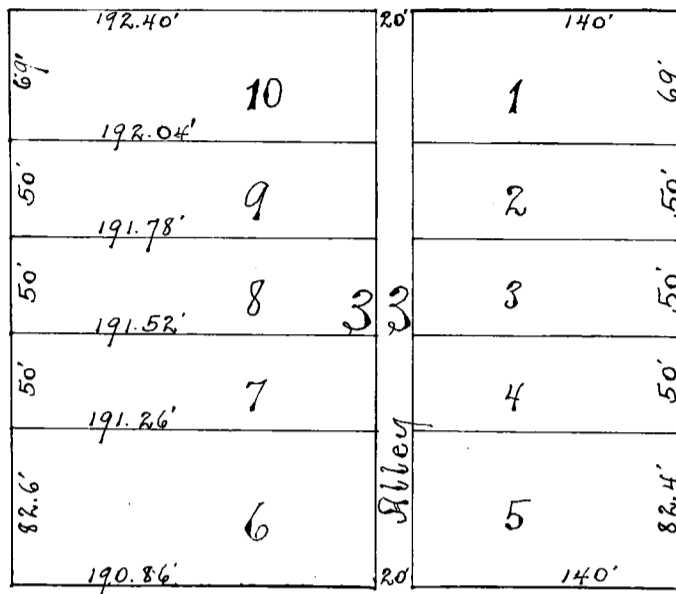 192.40' 20' 140'
69' 10 1 69'
192.04'
50' 9 2 50'
191.78'
50' 8 33 3 50'
191.52'
50' 7 4 50'
191.26'
Alley
82.6' 6 5 82.4'
190.86' 20' 140'